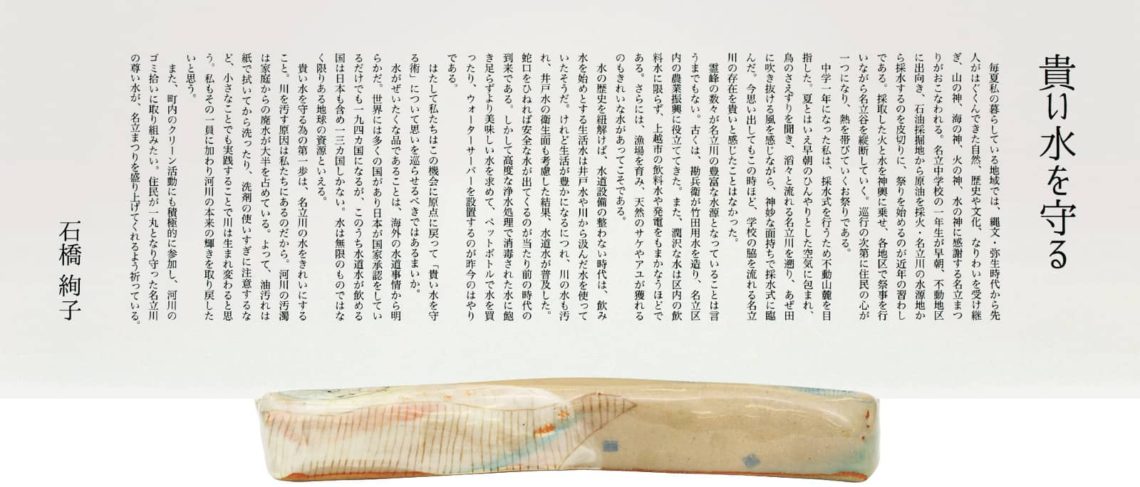 貴い水を守る
毎夏私の暮らしている地域では、縄文・弥生時代から先
人がはぐくんできた自然、歴史や文化、なりわいを受け継
ぎ、山の神、海の神、火の神、水の神に感謝する名立まつ
りがおこなわれる。名立中学校の一年生が早朝、不動地区
に出向き、石油採掘地から原油を採火・名立川の水源地か
ら採水するのを皮切りに、祭りを始めるのが近年の習わし
である。採取した火と水を神輿に乗せ、各地区で祭事を行
いながら名立谷を縦断していく。巡行の次第に住民の心が
一つになり、熱を帯びていくお祭りである。
中学一年になった私は、採水式を行うため不動山麓を目
指した。夏とはいえ早朝のひんやりとした空気に包まれ、
鳥のさえずりを聞き、滔々と流れる名立川を遡り、あぜ田
に吹き抜ける風を感じながら、神妙な面持ちで採水式に臨
んだ。今思い出してもこの時ほど、学校の脇を流れる名立
川の存在を貴いと感じたことはなかった。
霊峰の数々が名立川の豊富な水源となっていることは言
うまでもない。古くは、勘兵衛が竹田用水を造り、名立区
内の農業振興に役立ててきた。また、潤沢な水は区内の飲
料水に限らず、上越市の飲料水や発電をもまかなうほどで
ある。さらには、漁場を育み、天然のサケやアユが獲れる
のもきれいな水があってこそである。
水の歴史を紐解けば、水道設備の整わない時代は、飲み
水を始めとする生活水は井戸水や川から汲んだ水を使って
いたそうだ。けれど生活が豊かになるにつれ、川の水も汚
れ、井戸水の衛生面も考慮した結果、水道水が普及した。
蛇口をひねれば安全な水が出てくるのが当たり前の時代の
到来である。しかして高度な浄水処理で消毒された水に飽
き足らずより美味しい水を求めて、ペットボトルで水を買
ったり、ウォーターサーバーを設置するのが昨今のはやり
である。
はたして私たちはこの機会に原点に戻って「貴い水を守
る術」について思いを巡らせるべきではあるまいか。
水がぜいたくな品であることは、海外の水道事情から明
らかだ。世界には多くの国があり日本が国家承認をしてい
るだけでも一九四カ国になるが、このうち水道水が飲める
国は日本も含め一三カ国しかない。水は無限のものではな
く限りある地球の資源といえる。
貴い水を守る為の第一歩は、名立川の水をきれいにする
こと。川を汚す原因は私たちにあるのだから。河川の汚濁
は家庭からの廃水が大半を占めている。よって、油汚れは
紙で拭いてから洗ったり、洗剤の使いすぎに注意するな
ど、小さなことでも実践することで川は生まれ変わると思
う。私もその一員に加わり河川の本来の輝きを取り戻した
いと思う。
また、町内のクリーン活動にも積極的に参加し、河川の
ゴミ拾いに取り組みたい。住民が一丸となり守った名立川
の尊い水が、名立まつりを盛り上げてくれるよう祈っている。
石橋 絢子